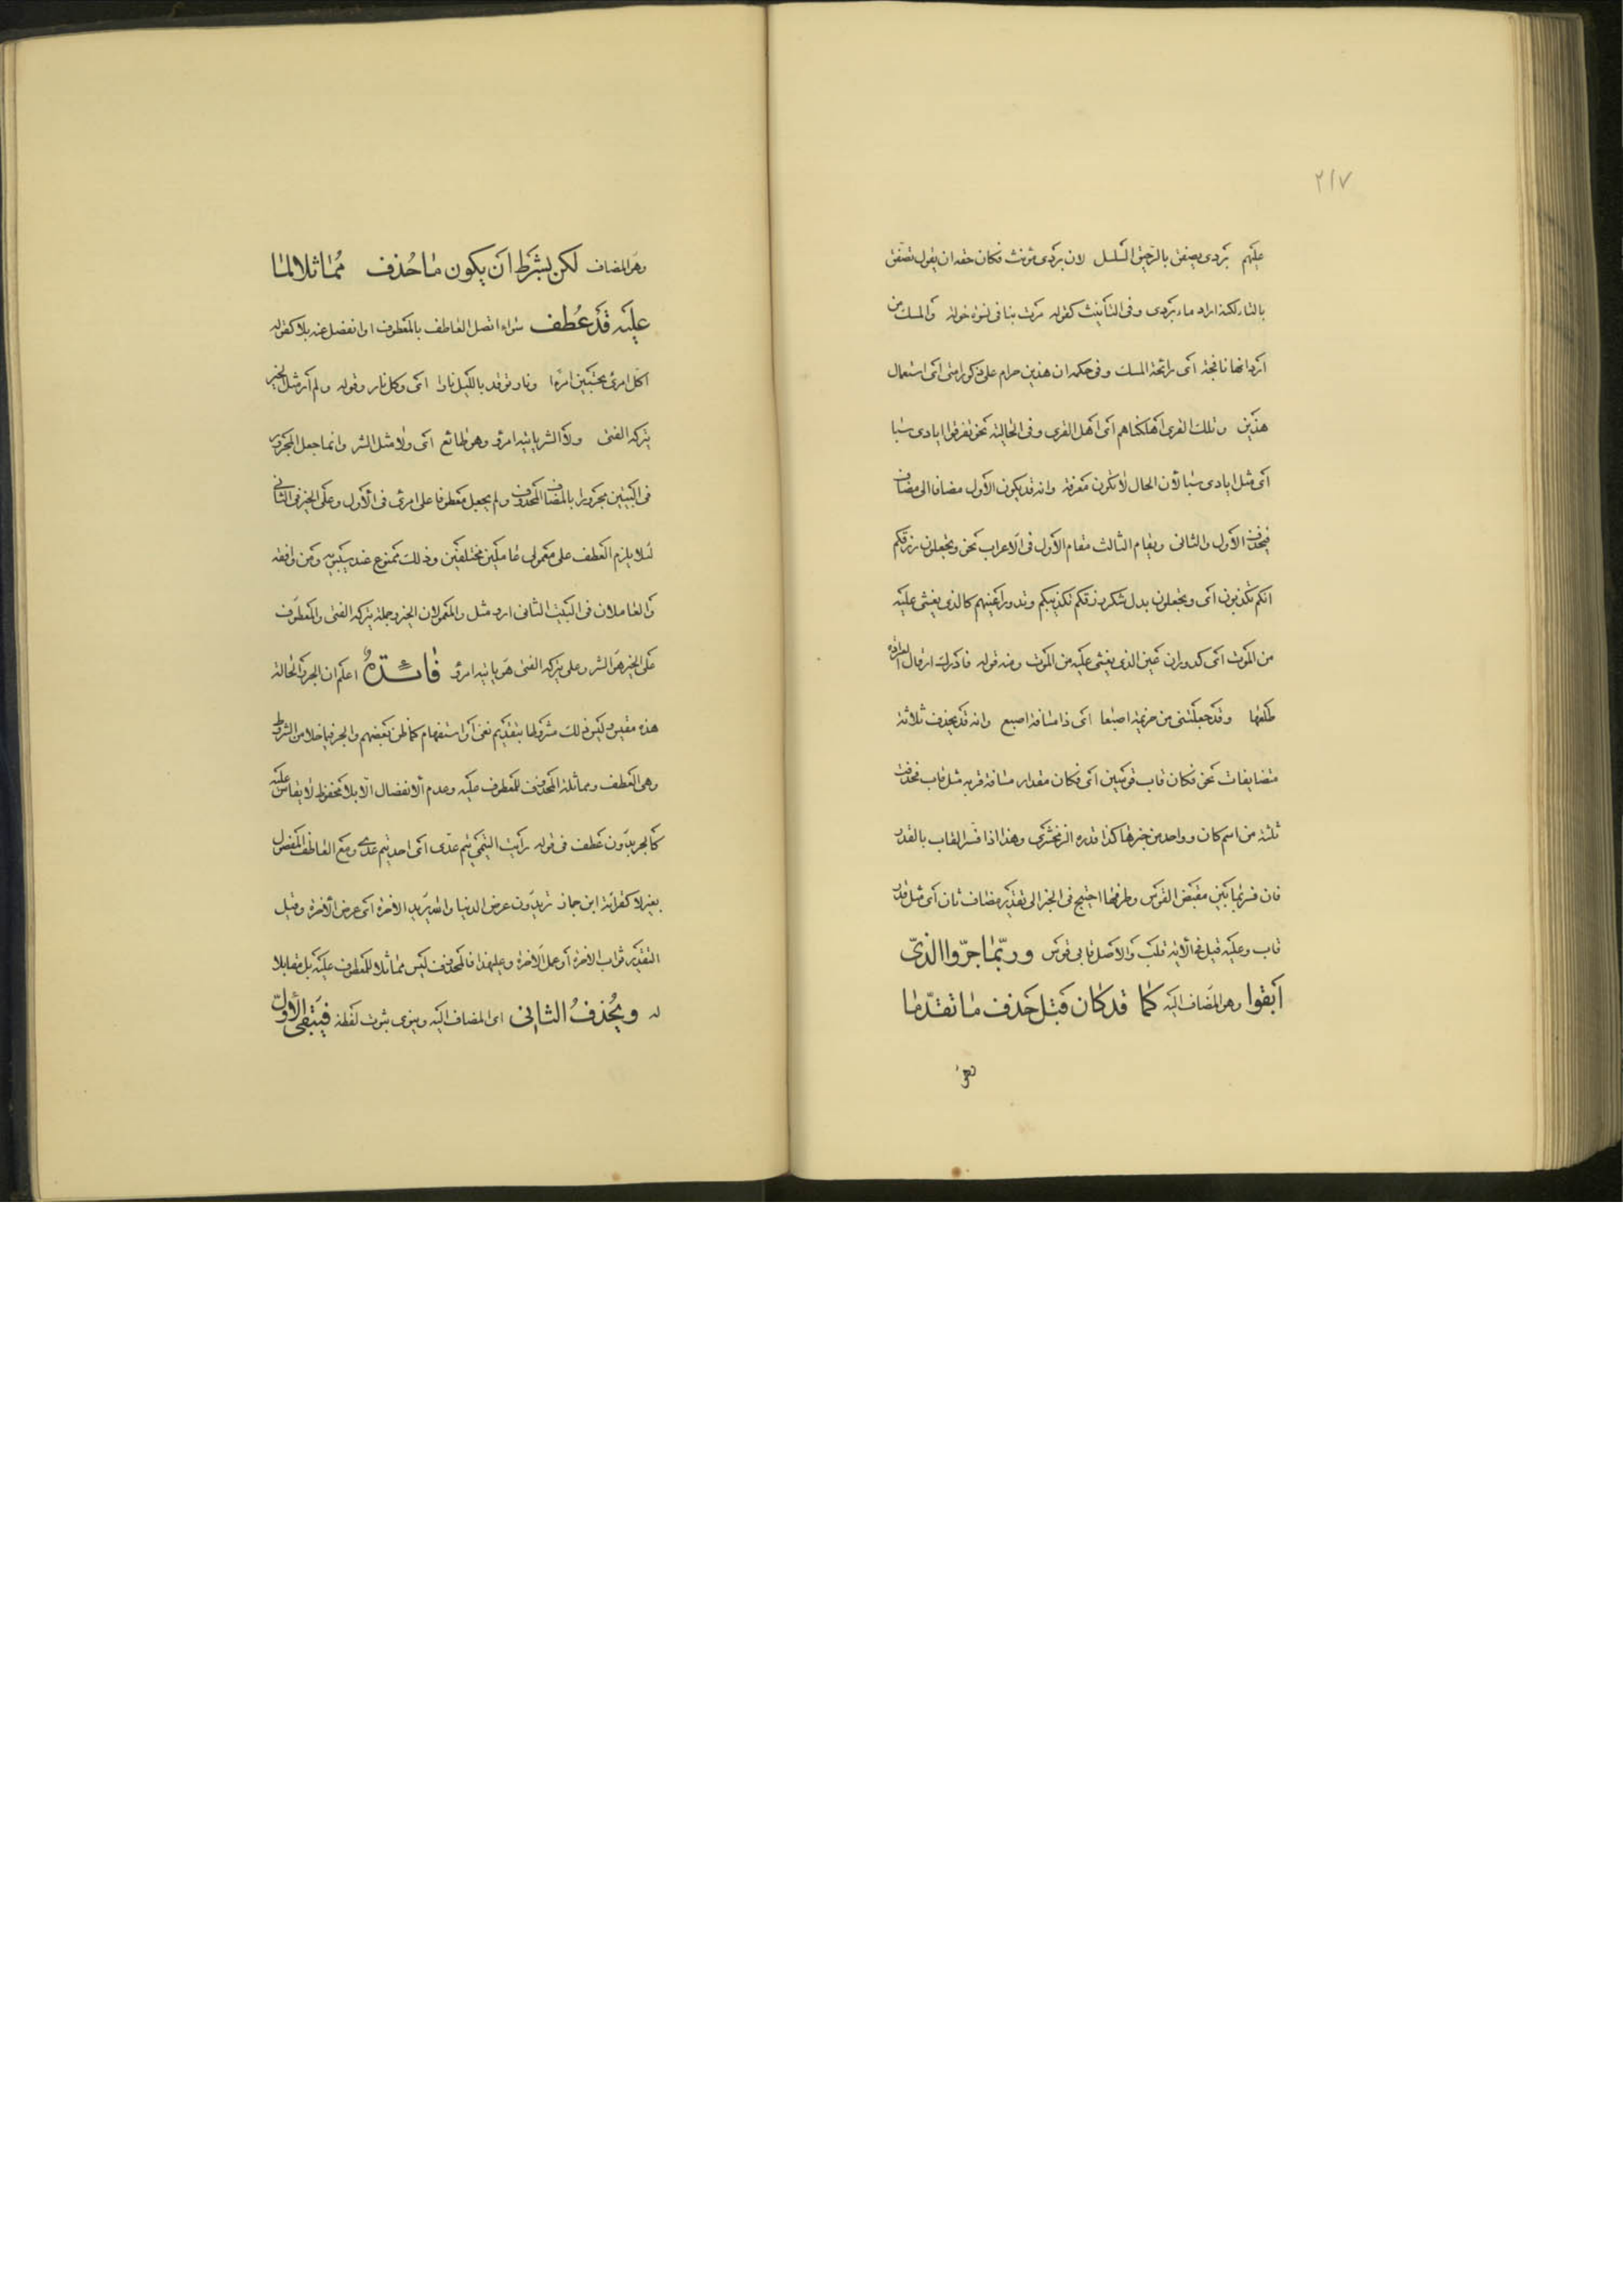 ٢١٧
عليهم بردى يصفق بالرحيق السلسل لان بردى مؤنث فكان حقه ان يقول تصفق
بالتاء لكنه اراد ماء بردى وفى التأنيث كقوله مرت بنا فى نسوة خولة والمسك من
اردانها نافحة اى رائحة المسك وفى حكمه ان هذين حرام على ذكور امتى اى استعمال
هذين وتلك القرى اهلكناهم اى اهل القرى وفى الحالية نحو تفرقوا ايادى سبا
اى مثل ايادى سبا لأن الحال لا تكون معرفة وانه قد يكون الأول مضافا الى مضاف
فيحذف الأول والثانى ويقام الثالث مقام الأول فى الاعراب نحو وتجعلون رزقكم
انكم تكذبون اى وتجعلون بدل شكر رزقكم تكذيبكم وتدور اعينهم كالذى يغشى عليه
من الموت اى كدوران عين الذى يغشى عليه من الموت ومنه قوله فادرك ارقال العرادة
ظلعها وقد جعلتنى من حزيمة اصبعا اى ذا مسافة اصبع وانه قد يحذف ثلاثة
متضايفات نحو فكان قاب قوسين اى فكان مقدار مسافة قربه مثل قاب فحذفت
ثلثة من اسم كان وواحد من خبرها كذا قدره الزمخشرى وهذا اذا فسر القاب بالقدر
فان فسر بما بين مقبض القوس وطرفها احتيج فى الخبر الى تقدير مضاف ثان اى مثل قدر
قاب وعليه قيل فى الآية قلب والاصل قابى قوس وربما جروا الذى
ابقوا وهو المضاف اليه كما قد كان قبل حذف ما تقدما
وهو المضاف لكن بشرط ان يكون ما حذف مماثلا لما
عليه قد عطف سواء اتصل العاطف بالمعطوف او انفصل عنه بلا كقوله
اكل امرئ تحسبين امرءا ونار توقد بالليل نارا اى وكل نار وقوله ولم ار مثل الخير
يتركه الفتى ولا الشر ياتيه امرؤ وهو طائع اى ولا مثل الشر وانما جعل المجرور
فى البيتين مجرورا بالمضاف المحذوف ولم يجعل معطوفا على امرئ فى الأول وعلى الخير فى الثانى
لئلا يلزم العطف على معمولى عاملين مختلفين وذلك ممنوع عند سيبويه ومن وافقه
والعاملان فى البيت الثانى ار ومثل والمعمولان الخير وجملة يتركه الفتى والمعطوف
على الخير هو الشر وعلى يتركه الفتى هو ياتيه امرؤ فائدة اعلم ان الجر والحالة
هذه مقيس وليس ذلك مشروطا بتقديم نفى او استفهام كما ظن بعضهم والجر فيما خلا من الشروط
وهى العطف ومماثلة المحذوف للمعطوف عليه وعدم الانفصال الا بلا محفوظ لا يقاس عليه
كالجر بدون عطف فى قوله رأيت التيمى تيم عدى اى احد تيم عدى ومع العاطف المفصول
بغير لا كقرائة ابن جماز تريدون عرض الدنيا والله يريد الاخرة اى عرض الأخرة وقيل
التقدير ثواب الاخرة او عمل الاخرة وعليهذا فالمحذوف ليس مماثلا للمعطوف عليه بل مقابلا
له ويحذف الثانى اى المضاف اليه وينوى ثبوت لفظه فيبقى الأول